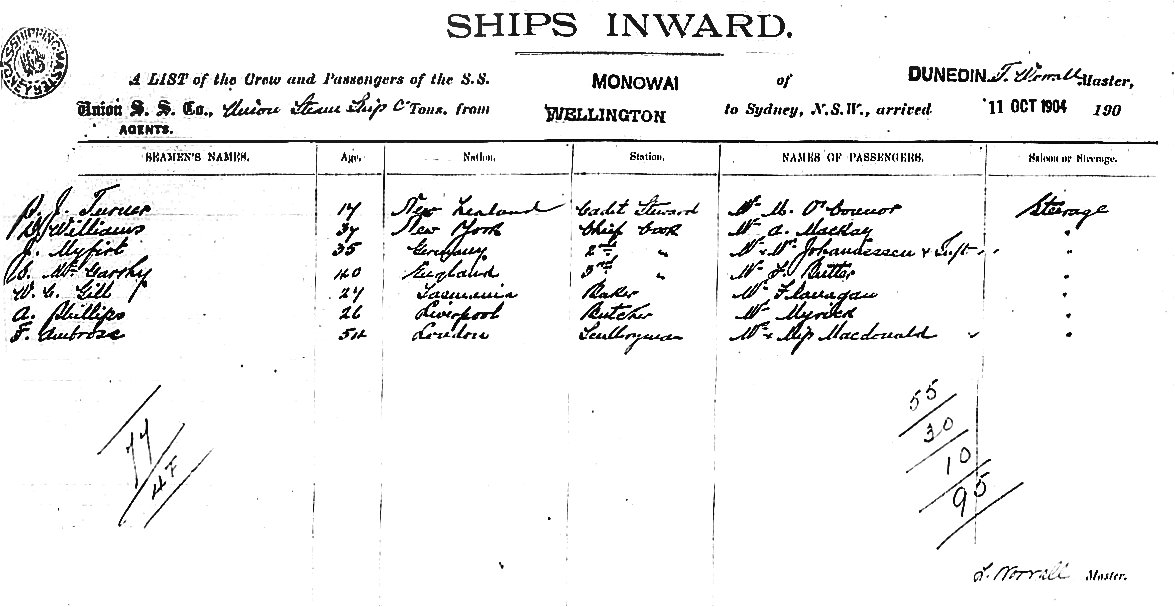 SHIPS INWARD.
SHIPPING MASTER SYDNEY
A LIST of the Crew and Passengers of the S.S. MONOWAI of DUNEDIN, Worrall Master,
Union S. S. Co., Union Steam Ship Co Tons, from WELLINGTON to Sydney, N.S.W., arrived 11 OCT 1904 190
AGENTS.
SEAMEN'S NAMES. Age. Nation. Station. NAMES OF PASSENGERS. Saloon or Steerage.
J. Turner 17 New Zealand Cadet Steward Mr M. O'Connor Steerage
Williams 37 New York Chief Cook Mr A. Mackay "
J. 35 Germany 2nd " Mr & Mrs Johannessen & "
Mc Garthy 40 England 3rd " Mr "
W. C. Gill 27 Tasmania Baker Mr Flanagan "
A. Phillips 26 Liverpool Butcher Mr Myrick "
F. Ambrose 54 London Sculleryman Mr & Miss Macdonald "
77
47
55
30
10
95
Worrall Master.